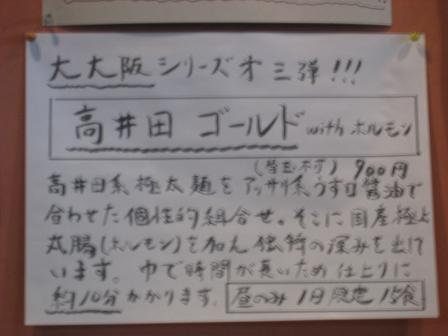 大大阪シリーズオ三弾!!!
高井田 ゴールド with ホルモン
(替玉不可) 900円
高井田系極太麺をアッサリ系うす口醤油で
合わせた個性的組合せ。そこに国産極上
丸腸(ホルモン)を加え 深みを出して
います。ゆで時間が長いため仕上りに
約10分かかります。 昼のみ 1日限定 15食